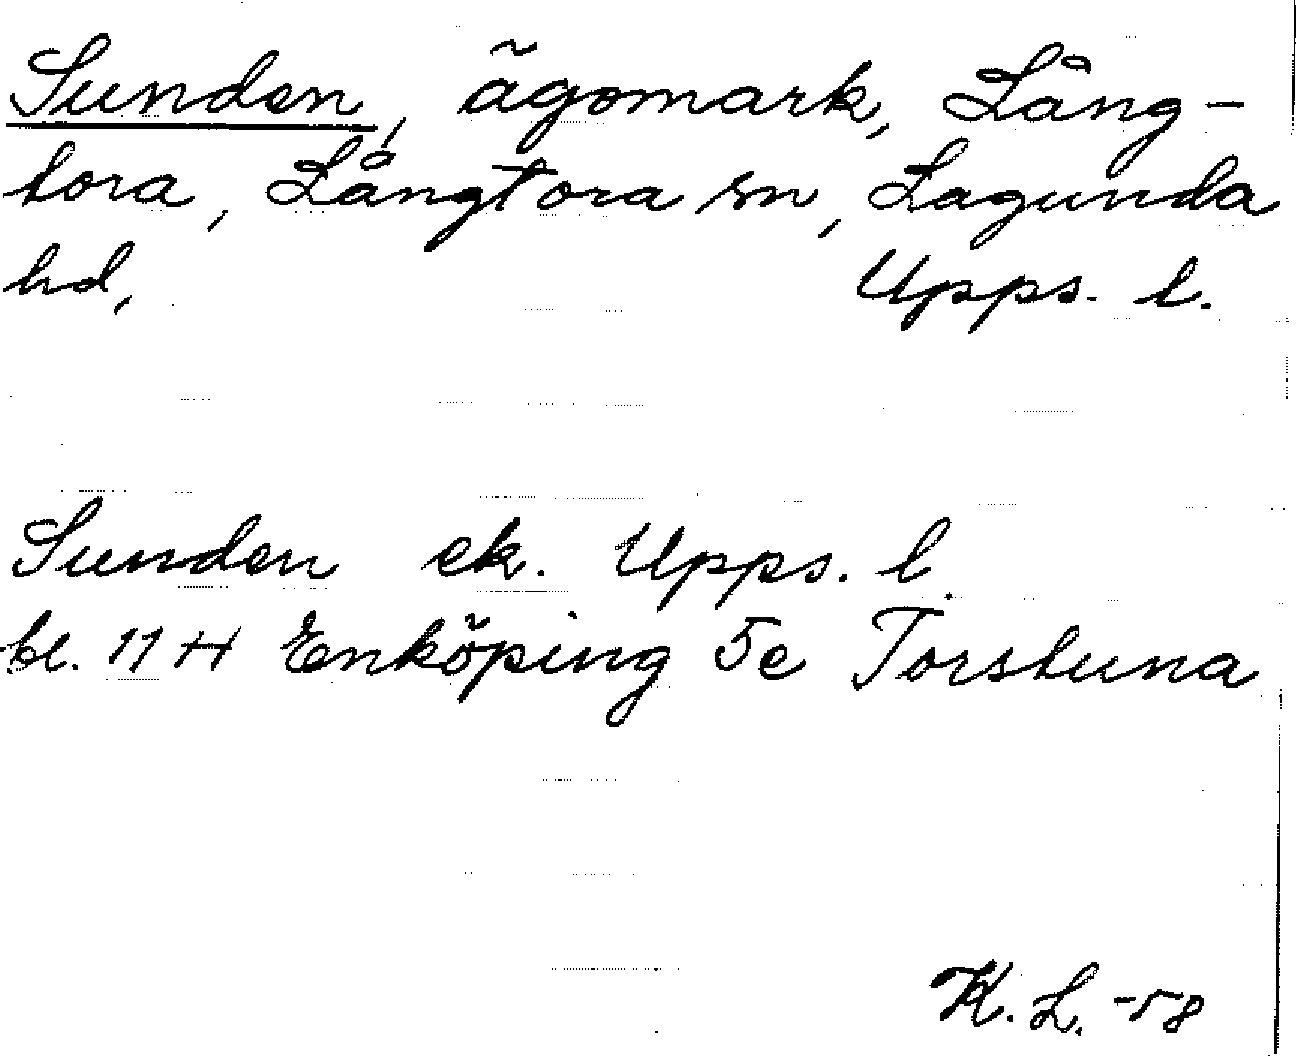 Sunden, ägomark, Lång-
tora, Långtora sn, Lagunda
hd, Upps. l.
Sunden ek. Upps. l.
bl. 11 H Enköping 5e Torstuna
K. L. -58